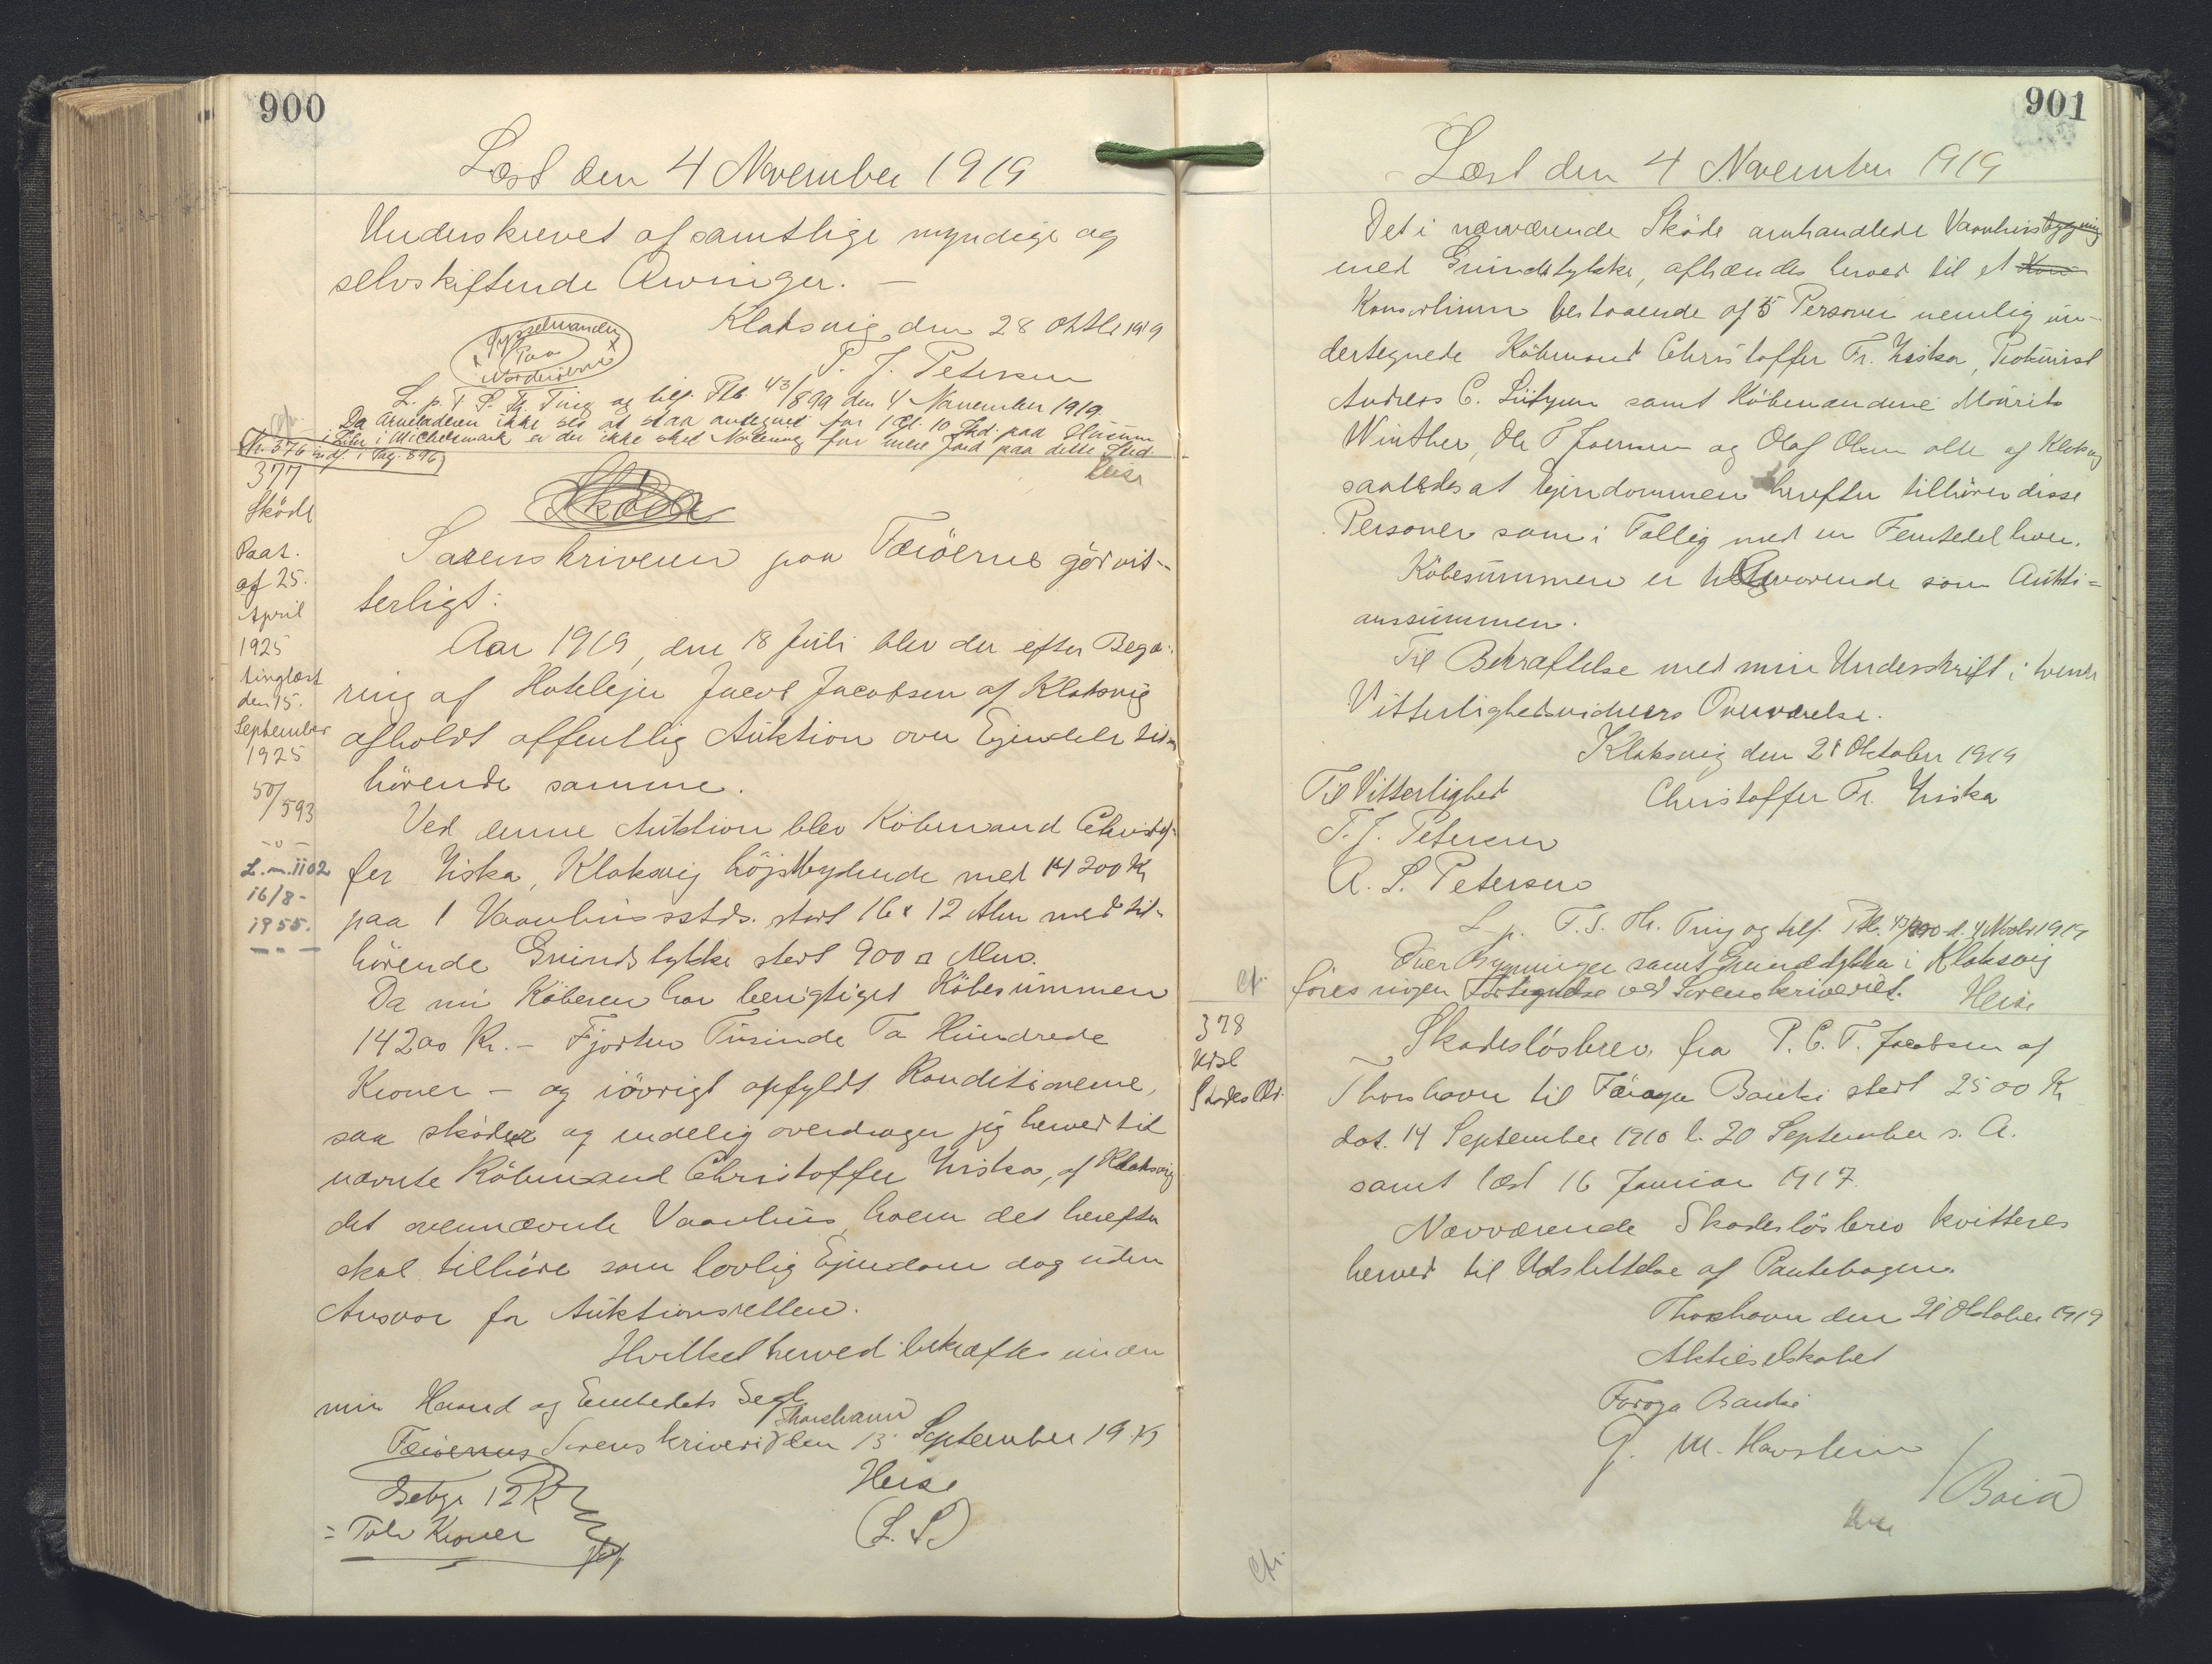 900
Læst den 4 November 1919
Underskrevet af samtlige myndige og
selvskiftende Arvinger. –
Klaksvig den 28 Oktb 1919
Sysselmanden
paa
Norderøerne
T. J. Petersen
L. p. T. S. Th. Ting og tilf. Ptb. 43/899 den 4 November 1919.
Da Arveladeren ikke ses at staa antegnet for 1 Gl. 10 Skd. paa
i Michelsmark er der ikke sket Notering for mere Jord paa dette Sted.
Heise
cfr.
Nr. 376 indf. i Pag. 896
377
Skøde
Paat.
af 25.
April
1925
tinglæst
den 15.
September
1925
50/593
L.m. 1102
16/8-
1955.
Skøde
Sorenskriveren paa Færöerne gör vit-
terligt:
Aar 1919, den 18 Juli blev der efter Begæ-
ring af Hotelejer Jacob Jacobsen af Klaksvig
afholdt offentlig Auktion over Ejendele til-
hörende samme.
Ved denne Auktion blev Köbmand Christof-
fer Hiska, Klaksvig höjstbydende med 14200 Kr
paa 1 Vaanhus sstds. stort 16 x 12 Alen med til-
hörende Grundstykke stort 900 □ Alen.
Da nu Köberen har berigtiget Köbesummen
14200 Kr. – Fjorten Tusinde To Hundrede
Kroner – og iövrigt opfyldt Konditionerne,
saa skøder og endelig overdrager jeg herved til
nævnte Köbmand Christoffer Hiska, af Klaksvig
det ovennævnte Vaanhus, hvem det herefter
skal tilhöre som lovlig Ejendom dog uden
Ansvar for Auktionsretten.
Hvilket herved bekræftes under
min Haand og Embedets Segl
Thorshavn
Færøernes Sorenskriveri den 13 September 1919
Heise
(L.S.)
Gebyr 12 Kr
= Tolv Kroner
901
Læst den 4 November 1919
Det i nærværende Sköde omhandlede Vaanhusbygning
med Grundstykke, afhændes herved til et Kon
Konsortium bestaaende af 5 Personer nemlig un-
dertegnede Köbmand Christoffer Fr. Hiska, Prokurist
Andreas C. Lützen samt Köbmændene Mourits
Winther, Ole P Joensen og Olaf Olsen alle af Klaksvig
saaledes at Ejendommen herefter tilhörer disse
Personer som i Fællig med en Femtedel hver.
Köbesummen er tilsvarende som Aukti-
onssummen.
Til Bekræftelse med min Underskrift i tvende
Vitterlighedsvidners Overværelse.
Klaksvig den 28 Oktober 1919
Til Vitterlighed
Christoffer Fr. Hiska
T. J. Petersen
A. S. Petersen
L. p. T. S. Th. Ting og tilf. Ptb. 43/900 d. 4 Novbr 1919
Over Bygninger samt Grundstykker i Klaksvig
föres ingen Fortegnelse ved Sorenskriveriet.
Heise
cfr.
378
Udsl
Skadesl.br.
Skadeslösbrev fra P. C. T. Jacobsen af
Thorshavn til Föroya Banki stort 2500 Kr
dat. 14 September 1910 l. 20 September s. A.
samt læst 16 Januar 1917.
Nærværende Skadeslösbrev kvitteres
herved til Udslettelse af Pantebogen.
Thorshavn den 21 Oktober 1919
Aktieselskabet
Föroya Banki
J. M. Havsteen
/Boia
Heise
cfr.